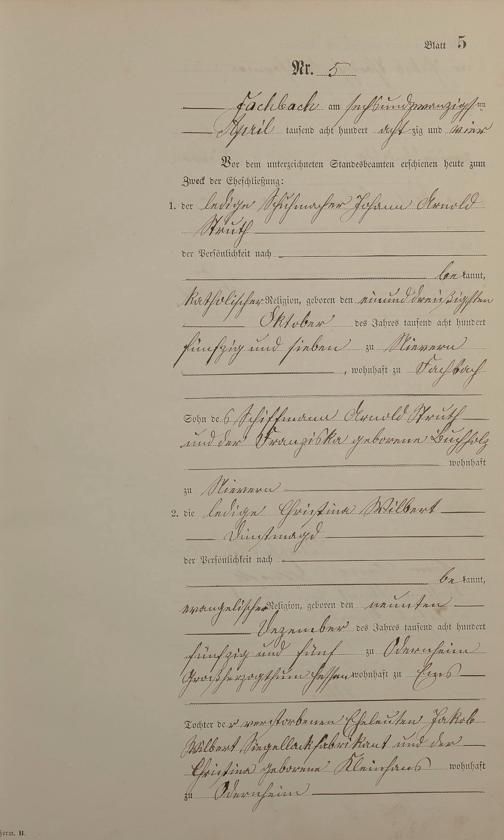 Blatt 5
Nr. 5
Fachbach am sechsundzwanzigsten
April tausend acht hundert achtzig und vier
Vor dem unterzeichneten Standesbeamten erschienen heute zum
Zweck der Eheschließung:
1. der ledige Schuhmacher Johann Arnold
Struth
der Persönlichkeit nach
bekannt,
katholischer Religion, geboren den einunddreißigsten
Oktober des Jahres tausend acht hundert
fünfzig und sieben zu Nievern
, wohnhaft zu Fachbach
Sohn des Schiffmann Arnold Struth
und der Franziska geborene Buchholz
wohnhaft
zu Nievern
2. die ledige Christina Wilbert
Dienstmagd
der Persönlichkeit nach
bekannt,
evangelischer Religion, geboren den neunten
Dezember des Jahres tausend acht hundert
fünfzig und fünf zu Odernheim
Großherzogthum Hessen wohnhaft zu Ems
Tochter der verstorbenen Eheleuten Jakob
Wilbert Siegellackfabrikant und der
Christina geborene Kleinhans wohnhaft
zu Odernheim